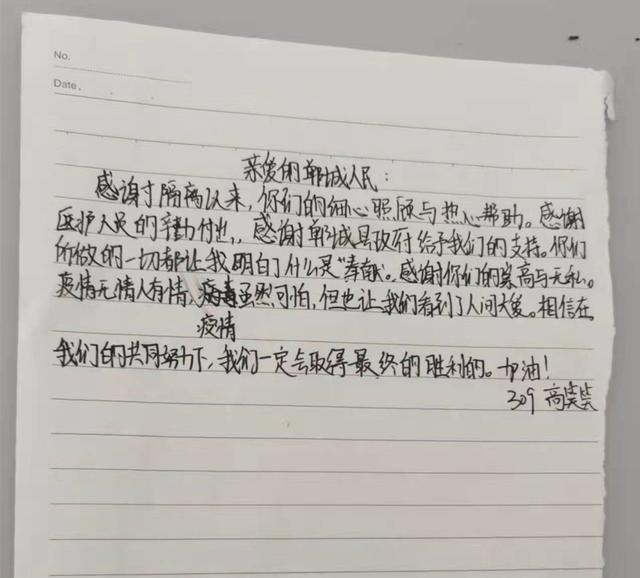 No.
Date.
亲爱的郸城人民：
感谢寸隔离以来，你们的细心照顾与热心帮助。感谢
医护人员的辛勤付出，感谢郸城县政府给予我们的支持。你们
所做的一切都让我明白了什么是“奉献”。感谢你们的崇高与无私。
疫情无情人有情、病毒虽然可怕，但也让我们看到了人间大爱。相信在
疫情
我们的共同努力下，我们一定会取得最终的胜利的。加油！
309 高笑笑